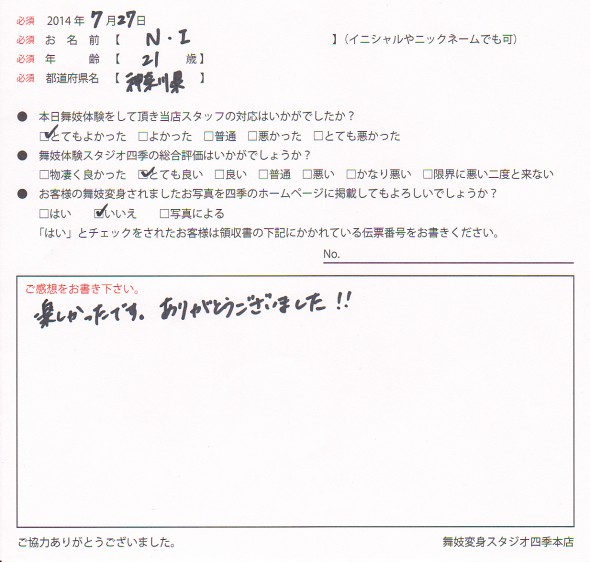 必須 2014年 7月27日
必須 お名前【 N・I 】(イニシャルやニックネームでも可)
必須 年齢【 21 歳】
必須 都道府県名【 神奈川県 】
● 本日舞妓体験をして頂き当店スタッフの対応はいかがでしたか?
☑とてもよかった □よかった □普通 □悪かった □とても悪かった
● 舞妓体験スタジオ四季の総合評価はいかがでしょうか?
□物凄く良かった ☑とても良い □良い □普通 □悪い □かなり悪い □限界に悪い二度と来ない
● お客様の舞妓変身されましたお写真を四季のホームページに掲載してもよろしいでしょうか?
□はい ☑いいえ □写真による
「はい」とチェックをされたお客様は領収書の下記にかかれている伝票番号をお書きください。
No.
ご感想をお書き下さい。
楽しかったです。ありがとうございました!!
ご協力ありがとうございました。
舞妓変身スタジオ四季本店